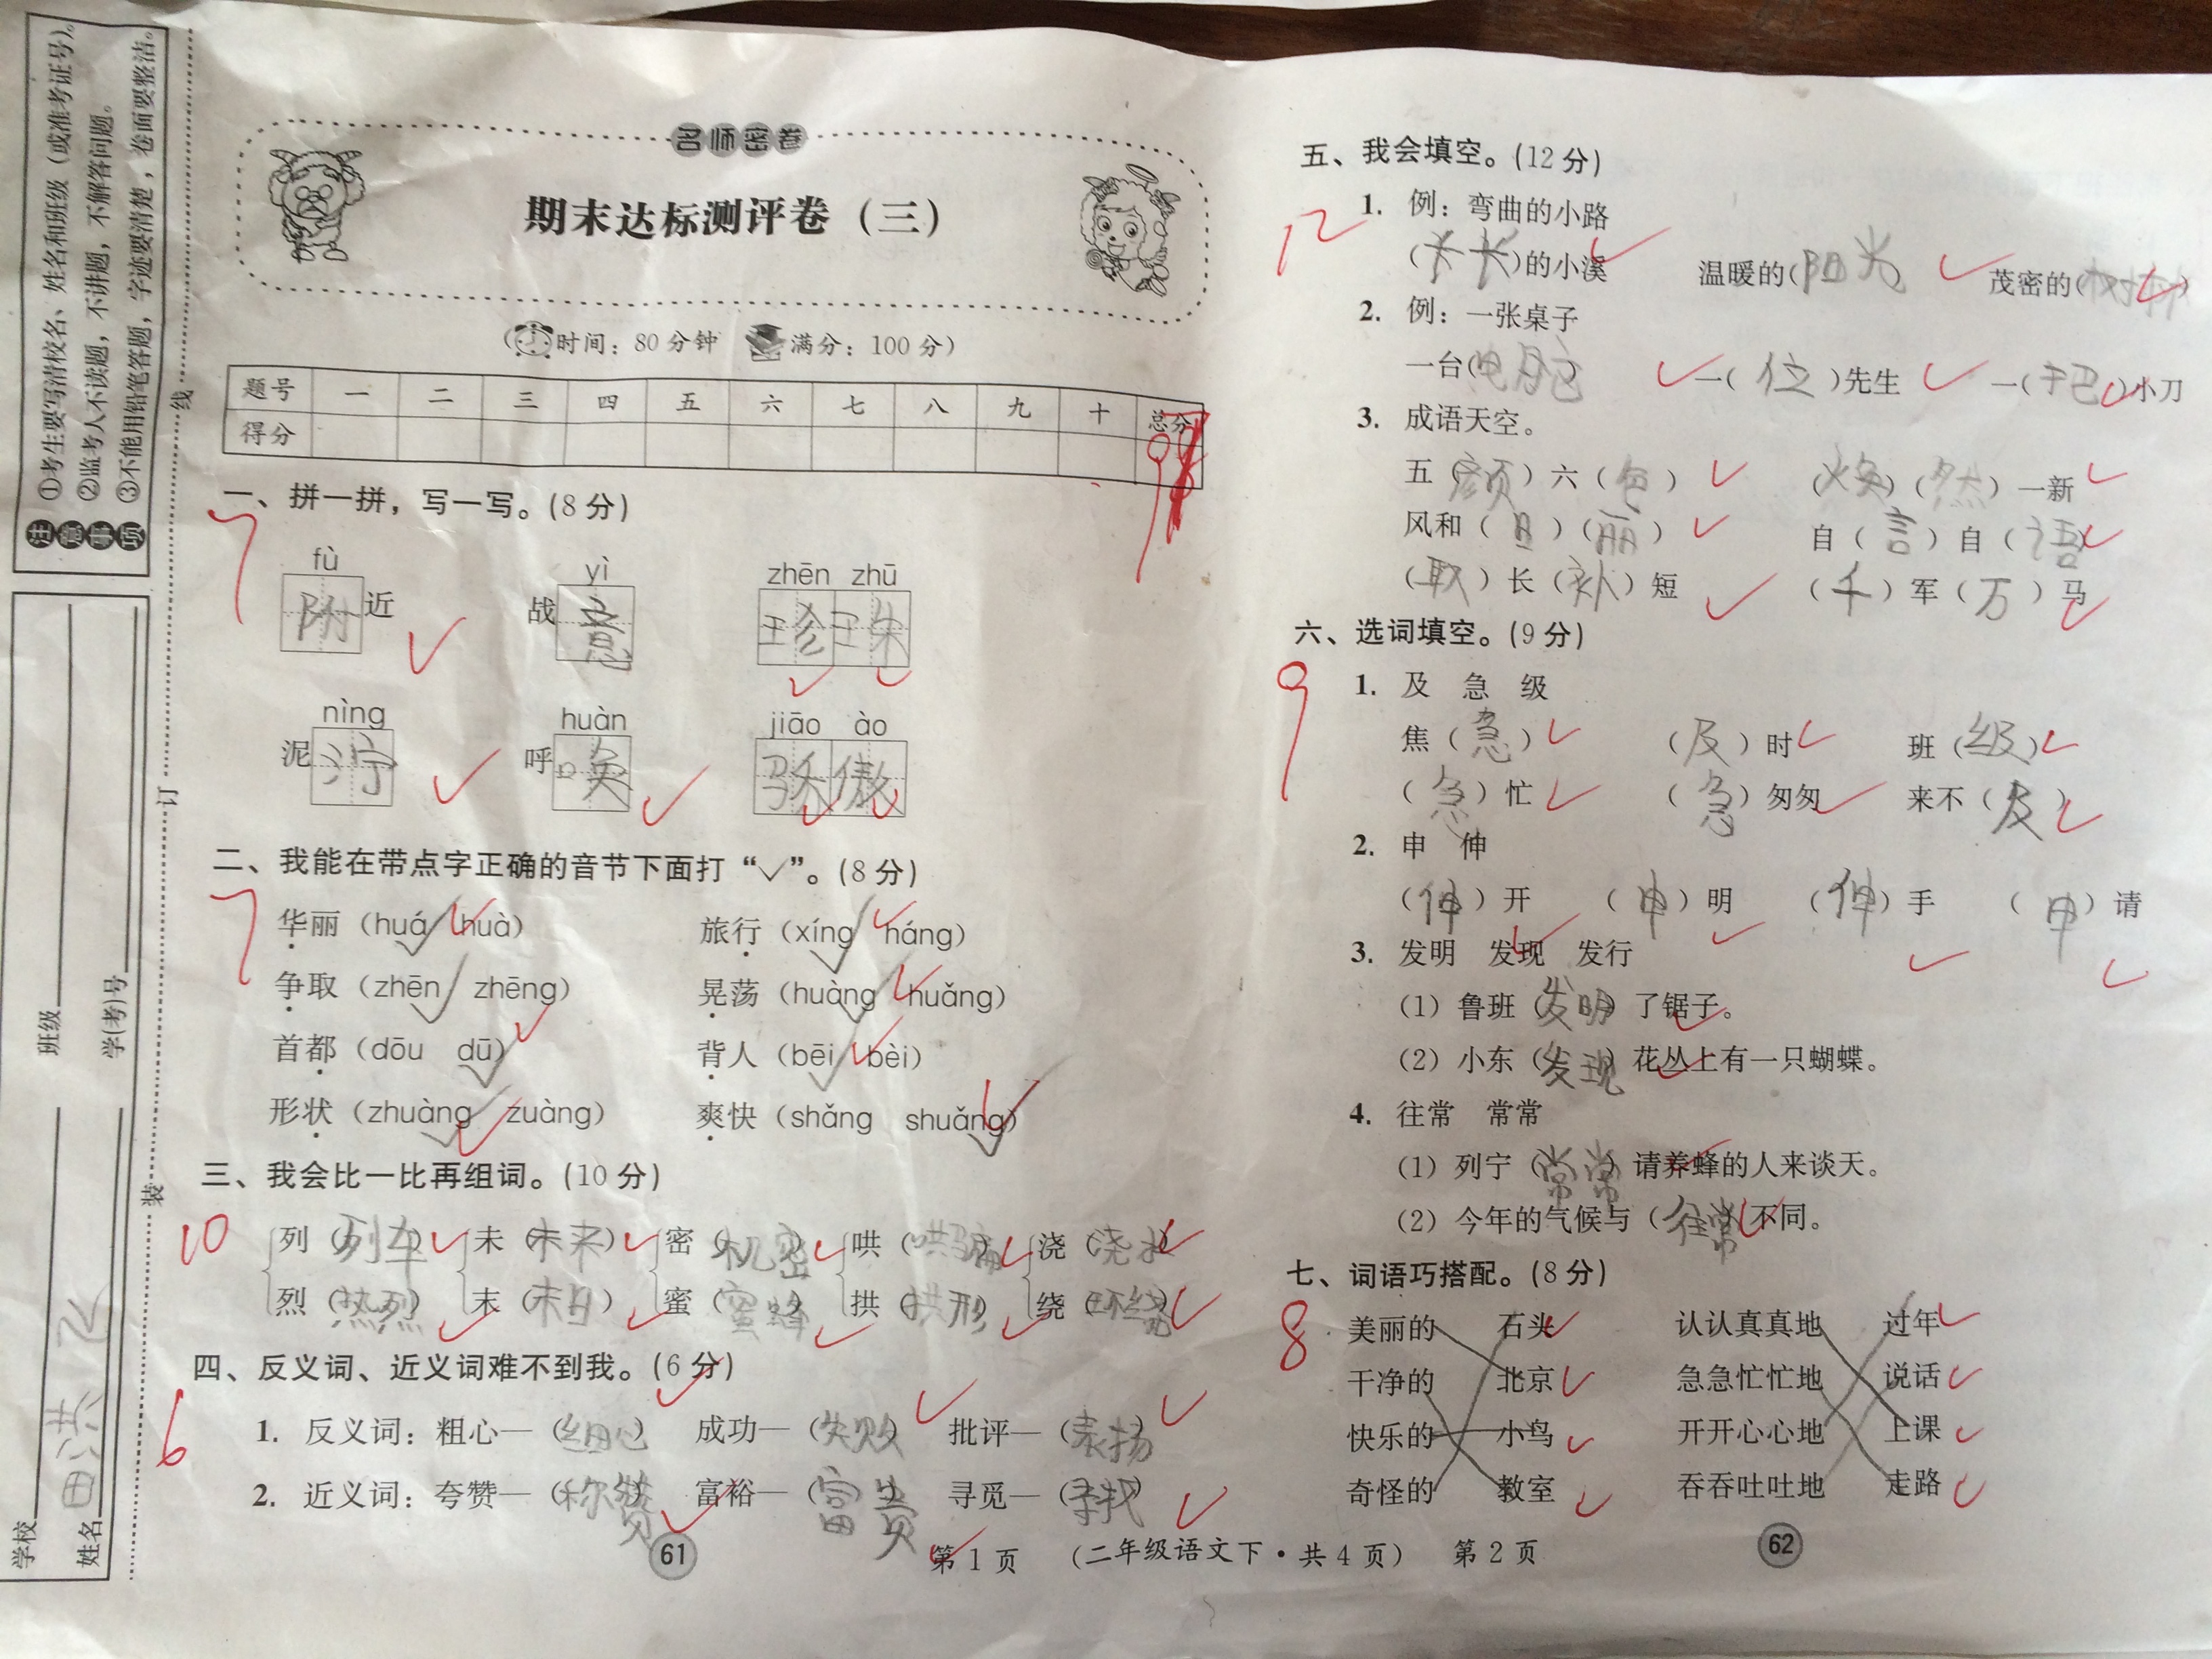 注意事项
①考生要写清校名、姓名和班级（或准考证号）。
②监考人不读题，不讲题，不解答问题。
③不能用铅笔答题，字迹要清楚，卷面要整洁。
学校 班级
姓名 田洪飞 学(考)号
装 订 线
名师密卷
期末达标测评卷（三）
（时间：80分钟 满分：100分）
题号 一 二 三 四 五 六 七 八 九 十 总分
得分
98
一、拼一拼，写一写。(8分)
7
fù yì zhēn zhū
附近 战意 珍珠
nìng huàn jiāo ào
泥泞 呼唤 骄傲
二、我能在带点字正确的音节下面打“✓”。(8分)
7
华丽（huá huà） 旅行（xíng háng）
争取（zhēn zhēng） 晃荡（huàng huǎng）
首都（dōu dū） 背人（bēi bèi）
形状（zhuàng zuàng） 爽快（shǎng shuǎng）
三、我会比一比再组词。(10分)
10
列（列车） 未（未来） 密（机密） 哄（哄骗） 浇（浇水）
烈（热烈） 末（末日） 蜜（蜜蜂） 拱（拱形） 绕（环绕）
四、反义词、近义词难不到我。(6分)
6
1. 反义词：粗心—（细心） 成功—（失败） 批评—（表扬）
2. 近义词：夸赞—（称赞） 富裕—（富贵） 寻觅—（寻找）
61
第1页 （二年级语文下·共4页） 第2页
五、我会填空。(12分)
12
1. 例：弯曲的小路
（长长）的小溪 温暖的（阳光） 茂密的（树林）
2. 例：一张桌子
一台（电脑） 一（位）先生 一（把）小刀
3. 成语天空。
五（颜）六（色） （焕）（然）一新
风和（日）（丽） 自（言）自（语）
（取）长（补）短 （千）军（万）马
六、选词填空。(9分)
9
1. 及 急 级
焦（急） （及）时 班（级）
（急）忙 （急）匆匆 来不（及）
2. 申 伸
（伸）开 （申）明 （伸）手 （申）请
3. 发明 发现 发行
（1）鲁班（发明）了锯子。
（2）小东（发现）花丛上有一只蝴蝶。
4. 往常 常常
（1）列宁（常常）请养蜂的人来谈天。
（2）今年的气候与（往常）不同。
七、词语巧搭配。(8分)
8
美丽的 石头 认认真真地 过年
干净的 北京 急急忙忙地 说话
快乐的 小鸟 开开心心地 上课
奇怪的 教室 吞吞吐吐地 走路
62